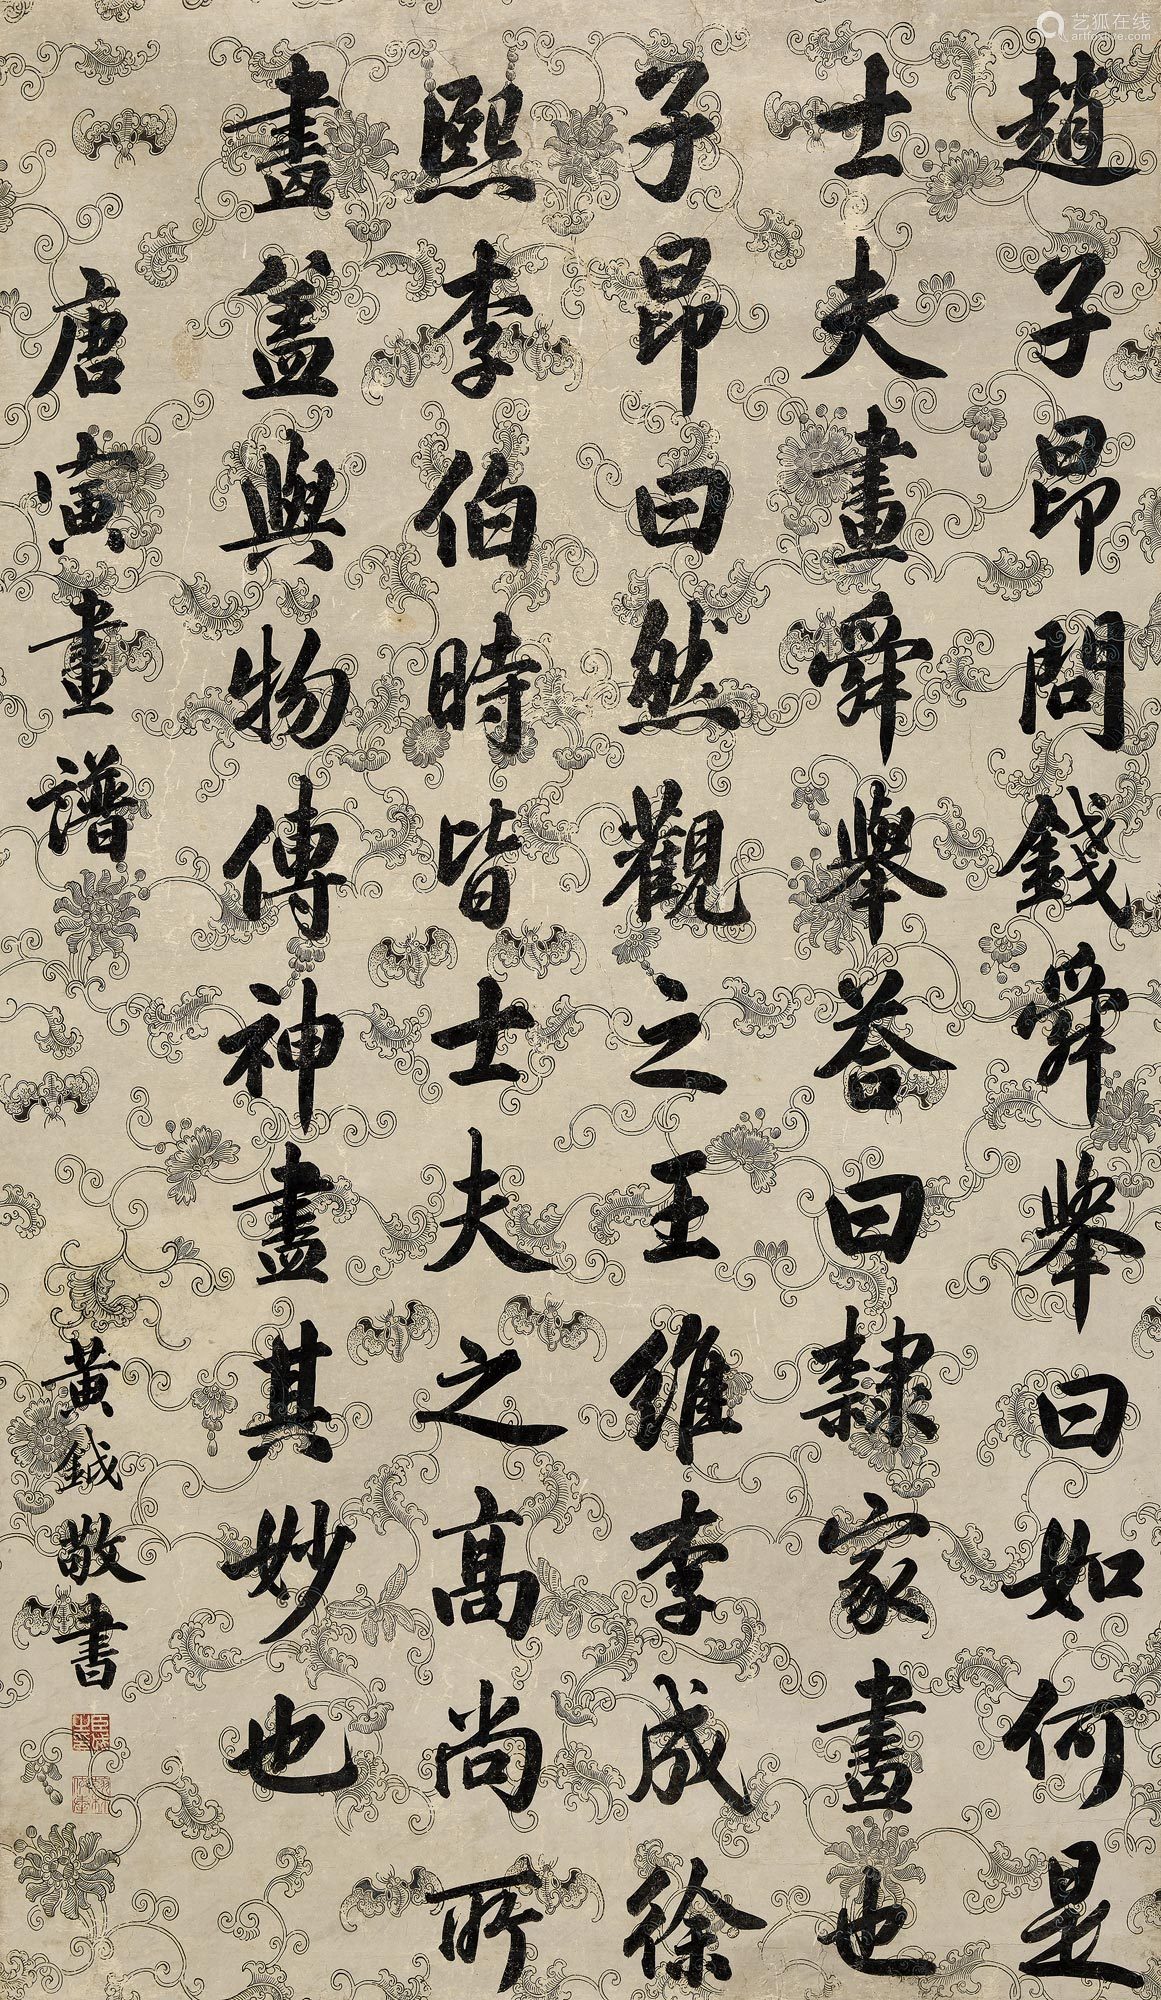 趙子昂問錢舜舉曰如何是
士夫畫舜舉答曰隸家畫也
子昂曰然觀之王維李成徐
熙李伯時皆士夫之高尚所
畫盖與物傳神盡其妙也
唐寅畫譜
黃鉞敬書
艺狐在线
artfoxlive.com